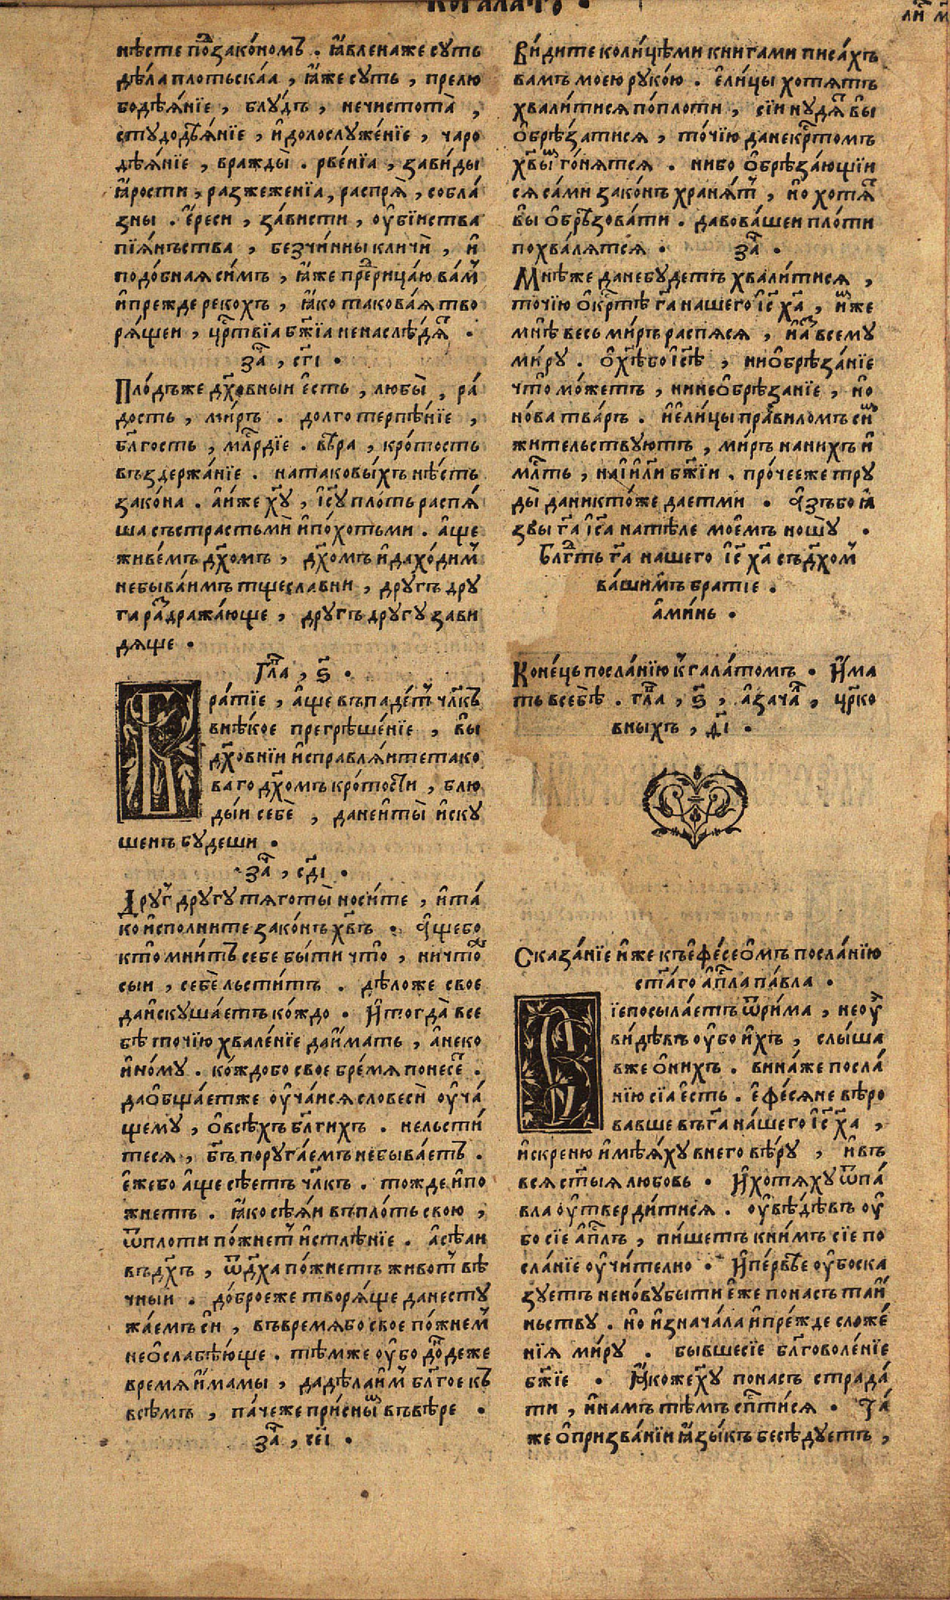 нѣсте пⷣозако́номъ . ꙗ҆вленаже суть
дѣла плотьскаа , ꙗ҆же суть , прелю
бодѣѧ́нїе , блу́дъ , нечистота̀ ,
студодѣѧ́нїе , и҆долослуже́нїе , чаро
дѣѧ́нїе , вражды̀ . рве́нїа , зави́ды
ꙗ҆рости , разжеженїа , распрѧ̀ , собла́
зны . є҆реси , за́висти , оу҆бїиства
пїѧ́нъства , безчи́нны кличѝ , и҆
подо́бнаѧ си́мъ , ꙗ҆же пре́рⷣицаю ва́мⷨ
и҆прежде рекохъ , ꙗ҆ко такова́ѧ тво
рѧ́щеи , црⷭ҇твїа бж҃їа ненаслѣ́дѧⷮ .
заⷱ , сг҃і .
Пло́дъже дх҃о́вныи є҆сть , любы̀ , ра́
дость , ми́ръ . долготерпѣ́нїе ,
бл҃гость , млрⷭ҇дїе . вѣ́ра , кро́тость
въздержа́нїе . натаковы́хъ нѣ́сть
зако́на . а҆и҆же хⷭ҇у , і҆су҃ плоть распѧ́
ша състрастьмѝ и҆по́хотьми . а҆ще
живе́мъ дх҃омъ , дх҃омъ и҆дахо́димⷨ
небыва́имъ тщеславни , дру́гъ дру
га раⷥдража́юще , другъ другу зави
дѧще .
Глⷡ҇а , ѕ҃ .
Бра́тїе , а҆ще въпаде́тⷮ чл҃къ
внѣ́кое прегрѣше́нїе , вы
дх҃о́внїи и҆справлѧ́итетако
ваго дх҃омъ кро́тости , блю
ды́и себѐ , данеи҆ты̀ и҆ску
ше́нъ будеши .
заⷱ , сд҃і .
Дру́гⷢ другу тѧготы̀ носи́те , и҆та́
ко и҆сполните зако́нъ хв҃ъ . а҆щебо
кто мни́тъ себе бы́ти что̀ , ничто́же
сыи , себѐльсти́тъ . дѣ́ложе свое
даи҆скуша́етъ ко́ждо . И҆тогда̀ все
бѣ̀ точїю хвале́нїе даи́мать , а҆неко
и҆но́му . ко́ждобо свое бре́мѧ понесеⷮ .
даѻ҆бща́етже оу҆ча́исѧсловесѝ оу҆ча́
щему , ѻ҆всѣ́хъ бл҃гихъ . нельсти́
тесѧ , бг҃ъ поруга́емъ небыва́етъ .
є҆жебо а҆ще сѣ́етъ чл҃къ . тожде и҆по
жнетъ . ꙗ҆ко сѣ́ѧи впло́ть свою ,
ѿпло́ти по́жнетⷮ и҆стлѣ́нїе . а҆сѣ́ѧи
въдх҃ъ , ѿдх҃а по́жнетъ живо́тⷮ вѣ́
чныи . до́броеже творѧ́ще данесту
жа́емъ си , въвремѧбо свое по́жнемⷨ
неѻ҆слабѣ́юще . тѣ́мже оу҆бо до́ндеже
времѧ и҆́мамы , дадѣ́лаимⷨ бл҃гое къ
всѣ́мъ , па́чеже при́сныⷨ въвѣ́ре .
заⷱ , се҃і .
Ви́дите коли́цѣми книгами писа́хъ
вамъ моею руко́ю . є҆ли́цы хотѧ́тъ
хвали́тисѧ по́плоти , сїи ну́дѧⷮ вы
ѻ҆брѣ́затисѧ , то́чїю данекрⷭ҇то́мъ
хв҃ыⷨ го́нѧтсѧ . нибо ѻ҆брѣза́ющїи
сѧ са́ми зако́нъ хранѧ́тⷮ , но хотѧⷮ
вы ѻ҆брѣзовати . давова́шеи пло́ти
похва́лѧтсѧ . заⷱ .
Мнѣ́же данебу́детъ хвали́тисѧ ,
то́чїю ѻ҆крⷭ҇тѣ́ га҃ нашего і҆с҃ ха҃ , и҆мⷨже
мнѣ́ весь ми́ръ распѧ́сѧ , и҆аⷥ всему
ми́ру . ѻ҆хѣ҃бо і҆сѣ҃ , ниѻ҆брѣза́нїе
что̀ мо́жетъ , нинеѻ҆брѣза́нїе , но
но́ва тва́рь . и҆е҆ли́цы пра́виломъ сиⷨ
жи́тельствуютъ , ми́ръ нани́хъ и҆
млⷭ҇ть , наі҆и҃ли бж҃їи . про́чееже тру
ды̀ даникто́же даетми . а҆зъбо ꙗ҆́
звы га҃ і҆са҃ натѣ́ле мое́мъ ношу̀ .
Бл҃гⷣть га҃ нашего і҆с҃ ха҃ съдх҃омⷨ
ва́шимъ братїе .
а҆ми́нь .
Коне́цъ посла́нїю к҆гала́томъ . И҆ма
ть всебѣ̀ . глⷡ҇а , ѕ҃ , а҆зача́лⷧ , црⷪ҇ко
вныхъ , д҃і .
Сказа́нїе и҆же къє҆фе́сеѻмъ посла́нїю
ст҃а́го а҆пⷭ҇ла па́вла .
Сїепосыла́етъ ѿри́ма , неоу҆
ви́дѣвъ оу҆бо и҆́хъ , слы́ша
вже ѻ҆ни́хъ . вина́же посла́
нїю сїа̀ є҆сть . є҆фе́сѧне вѣ́ро
вавше въга҃ на́шего і҆с҃ ха҃ ,
и҆скреню и҆мѣ́ѧху внего вѣ́ру , и҆въ
всѧ ст҃ы́ѧ любо́вь . И҆хотѧ́ху ѿпа́
вла оу҆тверди́тисѧ . оу҆вѣ́дѣвъ оу҆
бо сїе а҆пⷭ҇лъ , пи́шетъ книмъ сїе по
сла́нїе оу҆чи́телно . И҆пе́рвѣе оу҆боска
зуетъ нено́вубы́ти є҆же пона́съ таи́
ньству . но и҆знача́ла и҆пре́жде сложе́
нїѧ ми́ру . бы́вшесїе бл҃говоле́нїе
бж҃їе . Ꙗ҆коже хⷭ҇у пона́съ страда́
ти , и҆на́мъ тѣ́мъ спⷭ҇ти́сѧ . Та́
же ѻ҆призва́нїи ꙗ҆зы́къ бесѣ́дуетъ ,